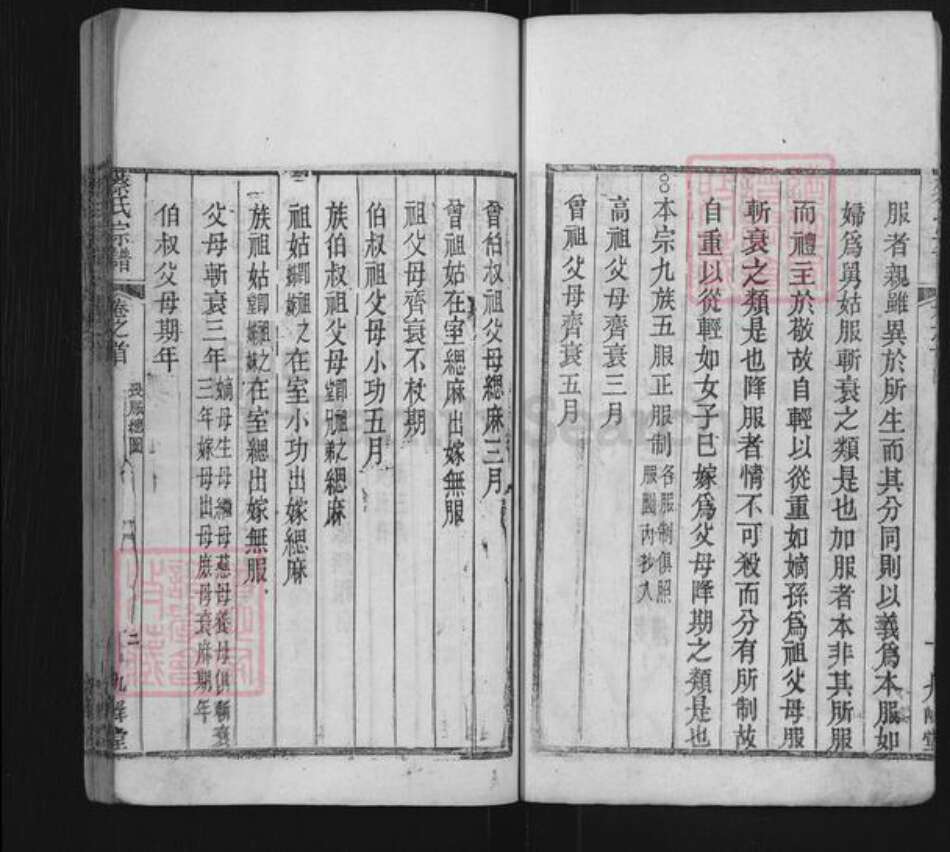 服者親雖異於所生而其分同則以義爲本服如
婦爲舅姑服斬衰之類是也加服者本非其所服
而禮主於敬故自輕以從重如嫡孫爲祖父母服
斬衰之類是也降服者情不可殺而分有所制故
自重以從輕如女子已嫁爲父母降期之類是也
○本宗九族五服正服制各服制俱照
服圖內抄入
高祖父母齊衰三月
曾祖父母齊衰五月
曾伯叔祖父母緦麻三月
曾祖姑在室緦麻出嫁無服
祖父母齊衰不杖期
伯叔祖父母小功五月
族伯叔祖父母卽祖之堂兄弟緦麻
祖姑卽祖之姊妹在室小功出嫁緦麻
族祖姑卽祖之堂姊妹在室緦出嫁無服
父母斬衰三年嫡母生母繼母慈母養母俱斬衰
三年嫁母出母庶母衰麻期年
伯叔父母期年
蔡氏宗譜
卷之首
喪服總圖
二
九
堂